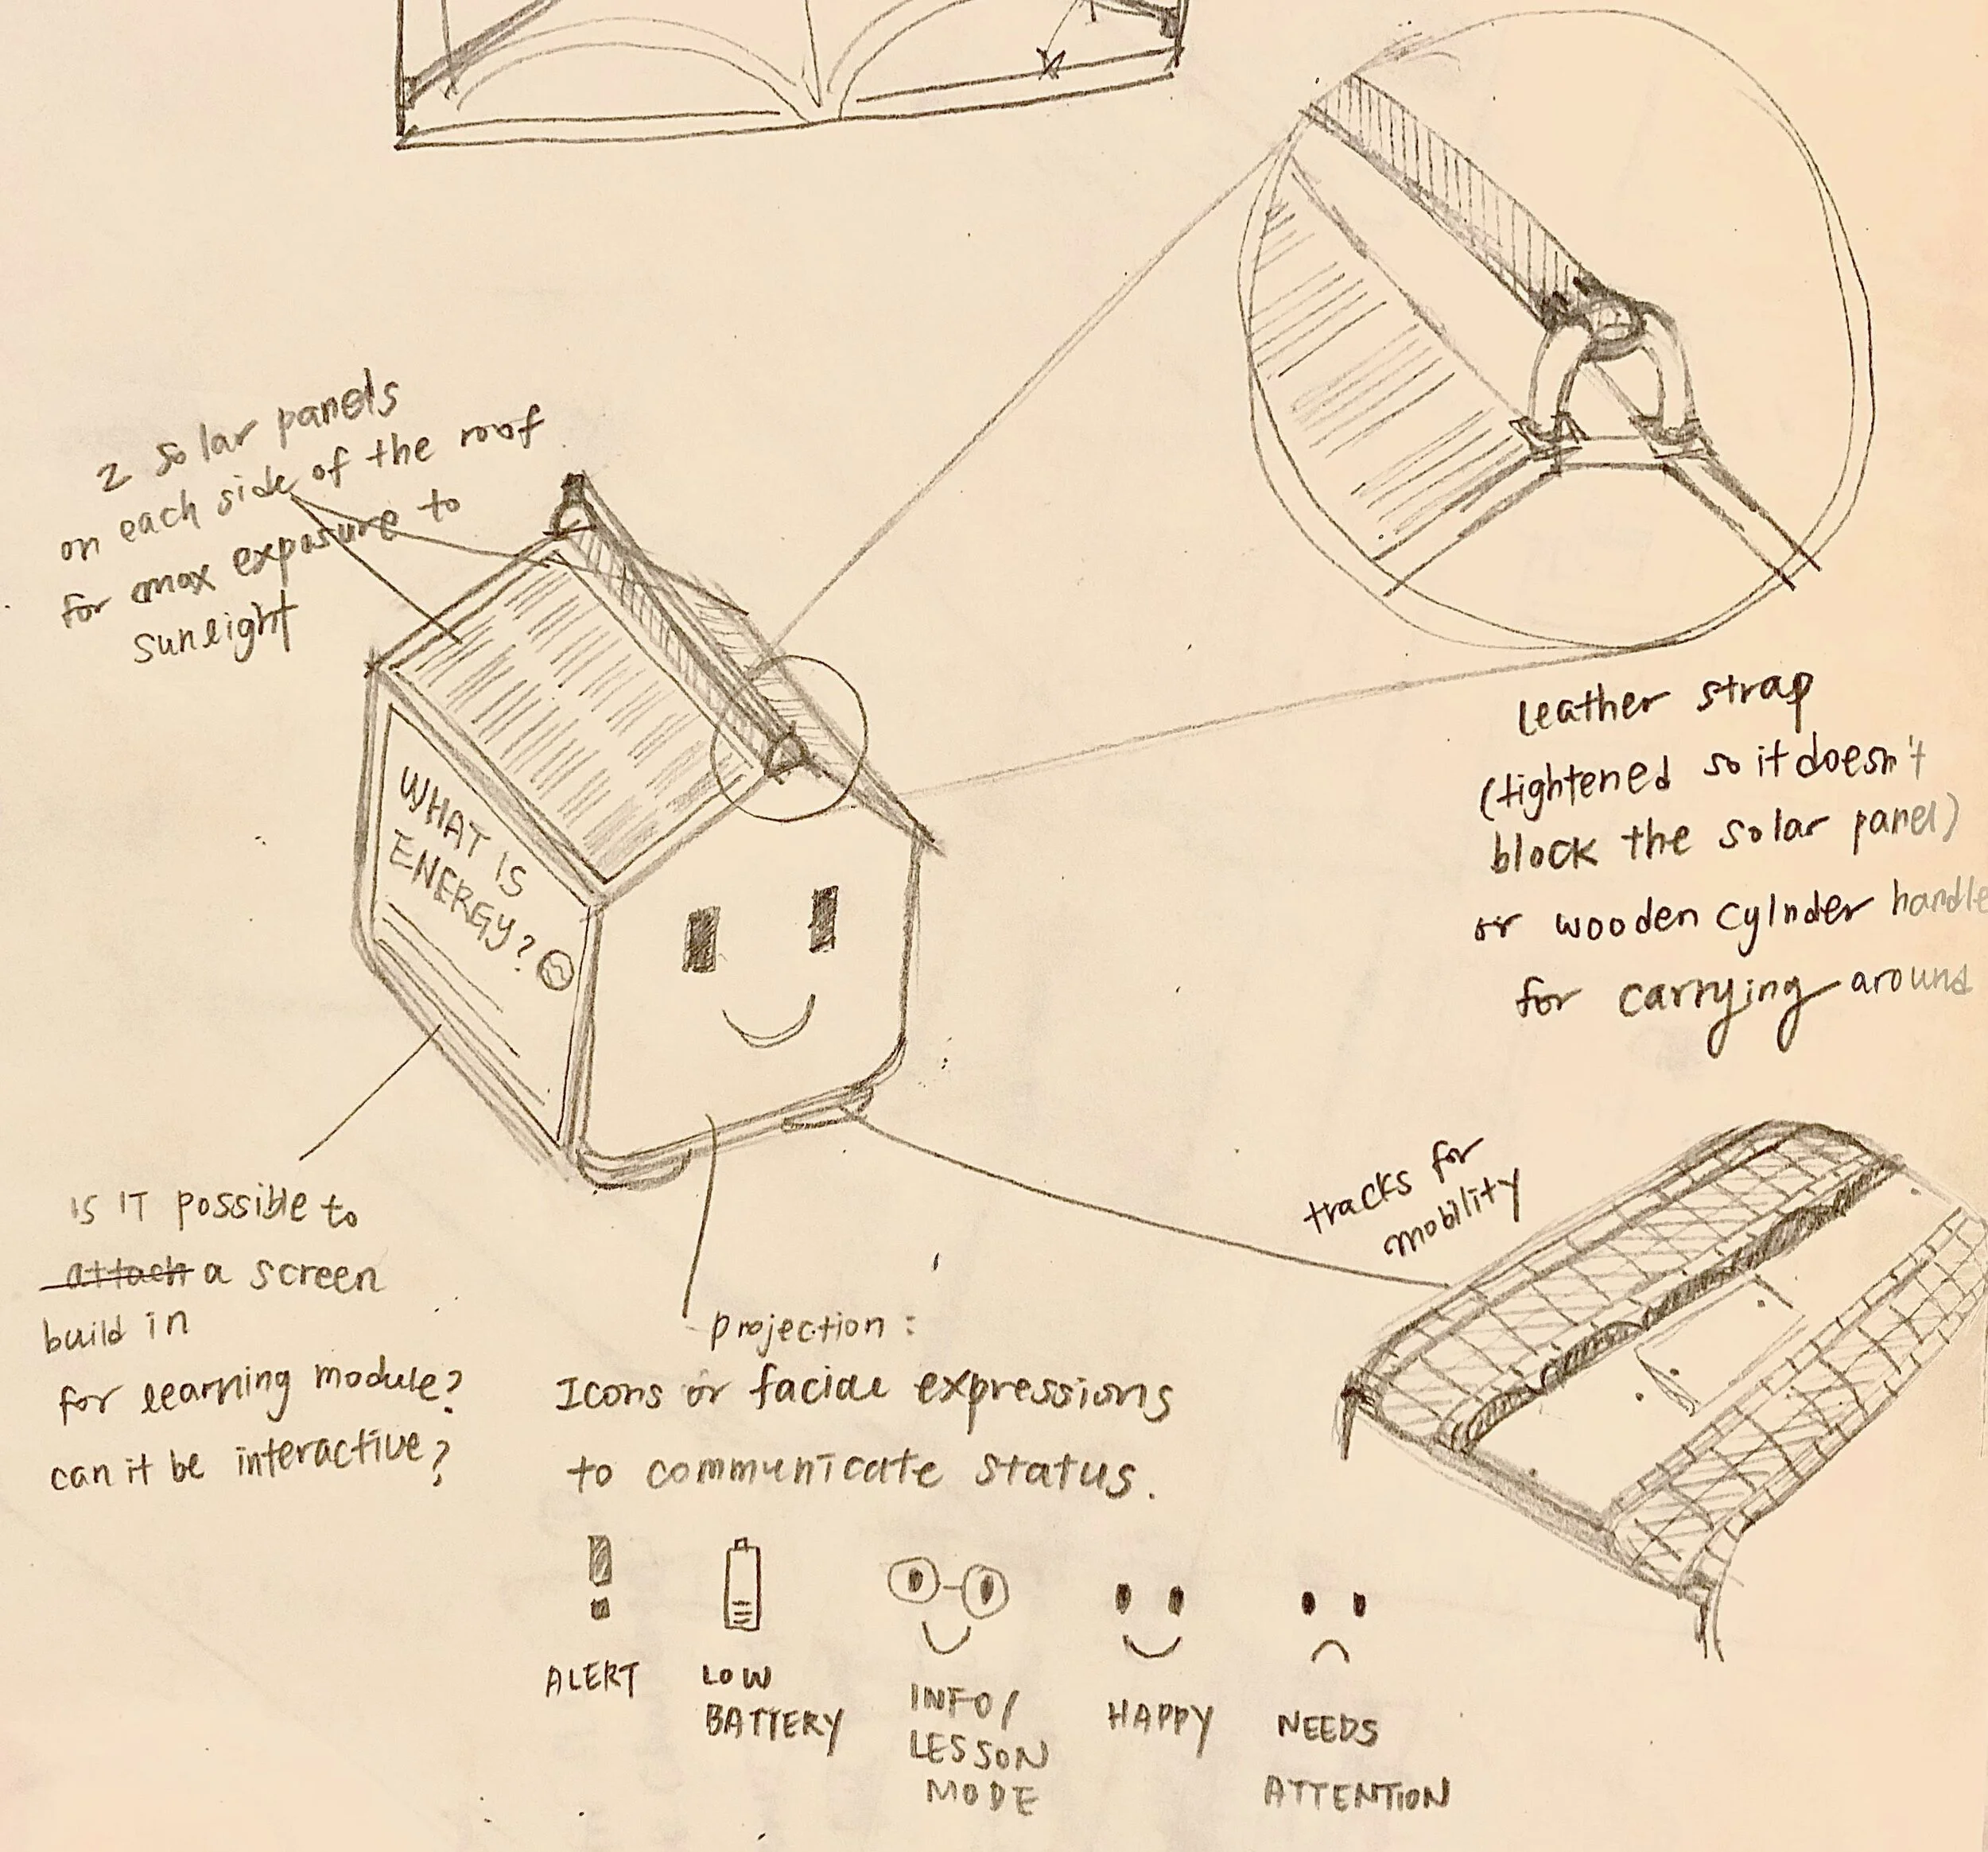 2 solar panels
on each side of the roof
for max exposure to
sunlight
WHAT IS
ENERGY?
leather strap
(tightened so it doesn't
block the solar panel)
or wooden cylnder handle
for carrying around
tracks for
mobility
IS IT possible to
attach a screen
build in
for learning module?
can it be interactive?
projection:
Icons or facial expressions
to communicate status.
ALERT
LOW
BATTERY
INFO/
LESSON
MODE
HAPPY
NEEDS
ATTENTION